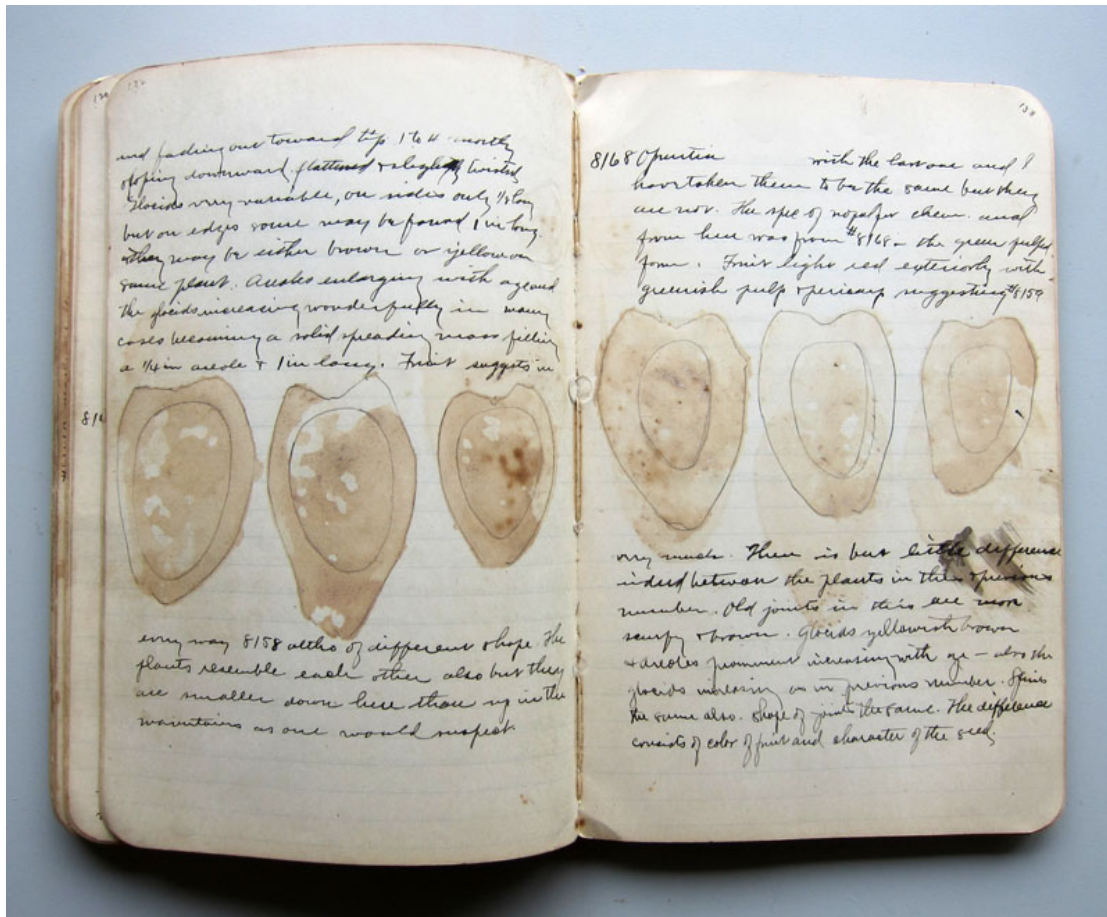 132
and fading out toward tip. 1 to 4 mostly
sloping downward flattened & slightly twisted
Glocids very variable, on sides only 1/8 long
but on edges some may be found 1 in long.
They may be either brown or yellow on
same plant. Areoles enlarging with age and
the glocids increasing wonderfully in many
cases becoming a solid spreading mass filling
a 1/4 in areole & 1 in long. Fruit suggests in
every way 8158 altho of different shape. The
plants resemble each other also but they
are smaller down here than up in the
mountains as one would suspect.
133
8168 Opuntia with the last one and I
have taken them to be the same but they
are not. The spec of nopal for chem. anal
from here was from #8168 – the green pulped
form. Fruit light red exteriorly with
greenish pulp & pericarp suggesting #8159
very much. There is but little difference
indeed between the plants in this & previous
number. Old joints in this are more
scurfy & brown. Glocids yellowish brown
& areoles prominent increasing with age – also the
glocids increasing as in previous number. Spines
the same also. Shape of joints the same. The difference
consists of color of fruit and character of the seed.